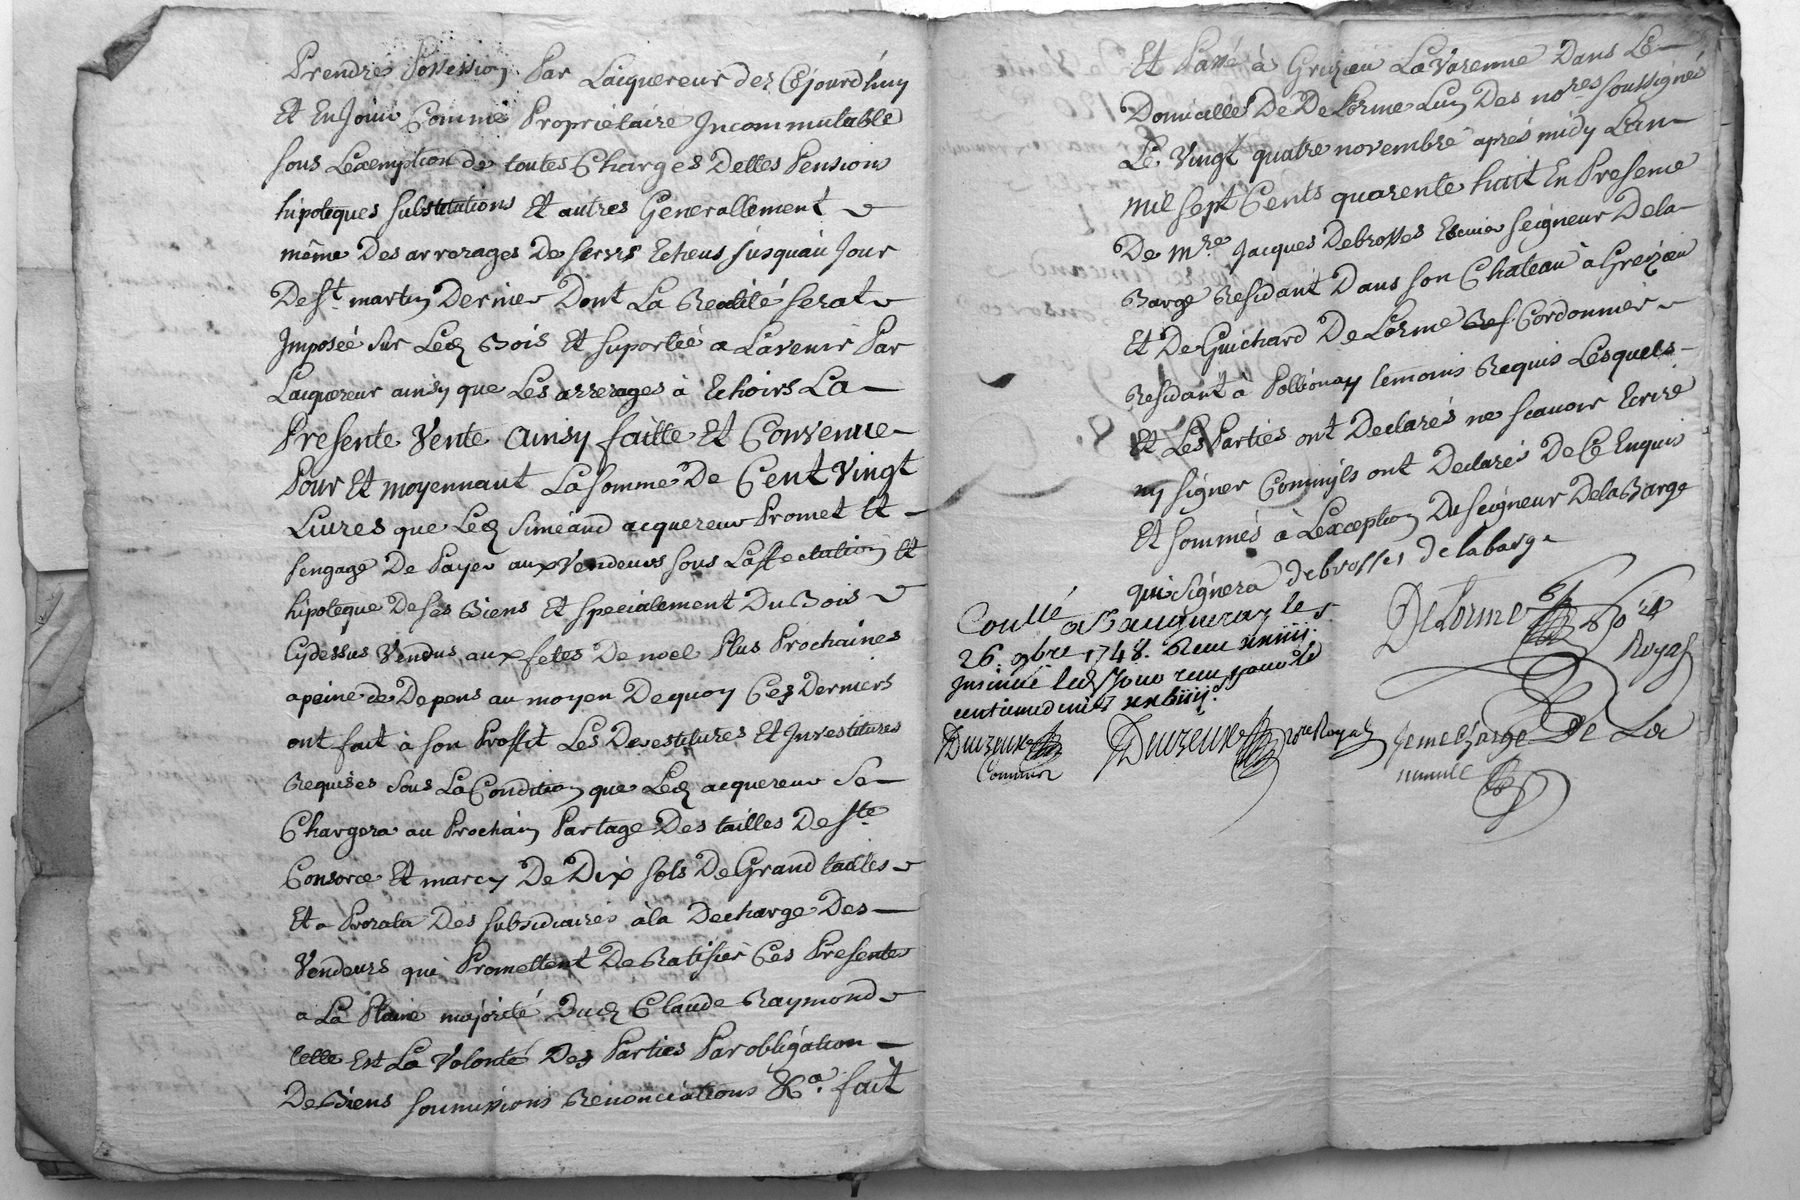 Prendre Possession Par Lacquereur dez Cejourdhuy
Et En Jouir Comme Propriétaire Incommutable
sous Lexemption de toutes Charges Dettes Pensions
hipoteques substitutions Et autres Generallement
même Des arrerages De servis Echeus jusquau Jour
De St martin Dernier Dont La Realité serat
Imposée sur Led Bois Et suportée a Lavenir Par
Lacquereur ainsy que Les arrerages à Echoirs La
Presente Vente ainsy faitte Et Convenue
Pour Et moyennant La somme De Cent Vingt
Livres que Led Siméand acquereur Promet Et
sengage De Payer aux Vendeurs sous Laffectation Et
hipoteque De ses Biens Et specialement Du Bois
Cydessus Vendus aux fetes De noel Plus Prochaines
apeine de Depens au moyen Dequoy Ces Derniers
ont fait à son Proffit Les Devestitures Et Investitures
Requises sous La Condition que Led acquereur Se
Chargera au Prochain Partage Des tailles De Ste
Consorce Et marcy De Dix sols De Grand tailles
Et a Prorata Des subsidiaires àla Decharge Des
Vendeurs qui Promettent De Ratifier Ces Presentes
a La Plaine majorité Dud Claude Raymond
telle Est La Volonté Des Parties Par obligation
De Biens soumissions Renonciations &a. fait
Et Passé à Grezieu La Varenne Dans Le
Domicille De De Lorme Lun Des nores soussignés
Le Vingt quatre novembre après midy Lan
mil sept Cents quarente huit En Presence
De mre Jacques Debrosses Ecuier seigneur Dela
Barge Residant Dans son Chateau à Grezieu
Et De Guichard De Lorme Cordonnier
Residant à Pollionay temoins Requis Lesquels
Et Les Parties ont Declarés ne scavoir Ecrire
ny signer Commils ont Declarés De Ce Enquis
Et sommés à Lexception Du seigneur Dela Barge
qui signera debrosses delabarge
DeLorme
Royal
Conllé a Vaugneray le
26. 9bre 1748. Receu
Insinué led Jour receu
Duvzeux
Commis
Duvzeux
Royal
De La